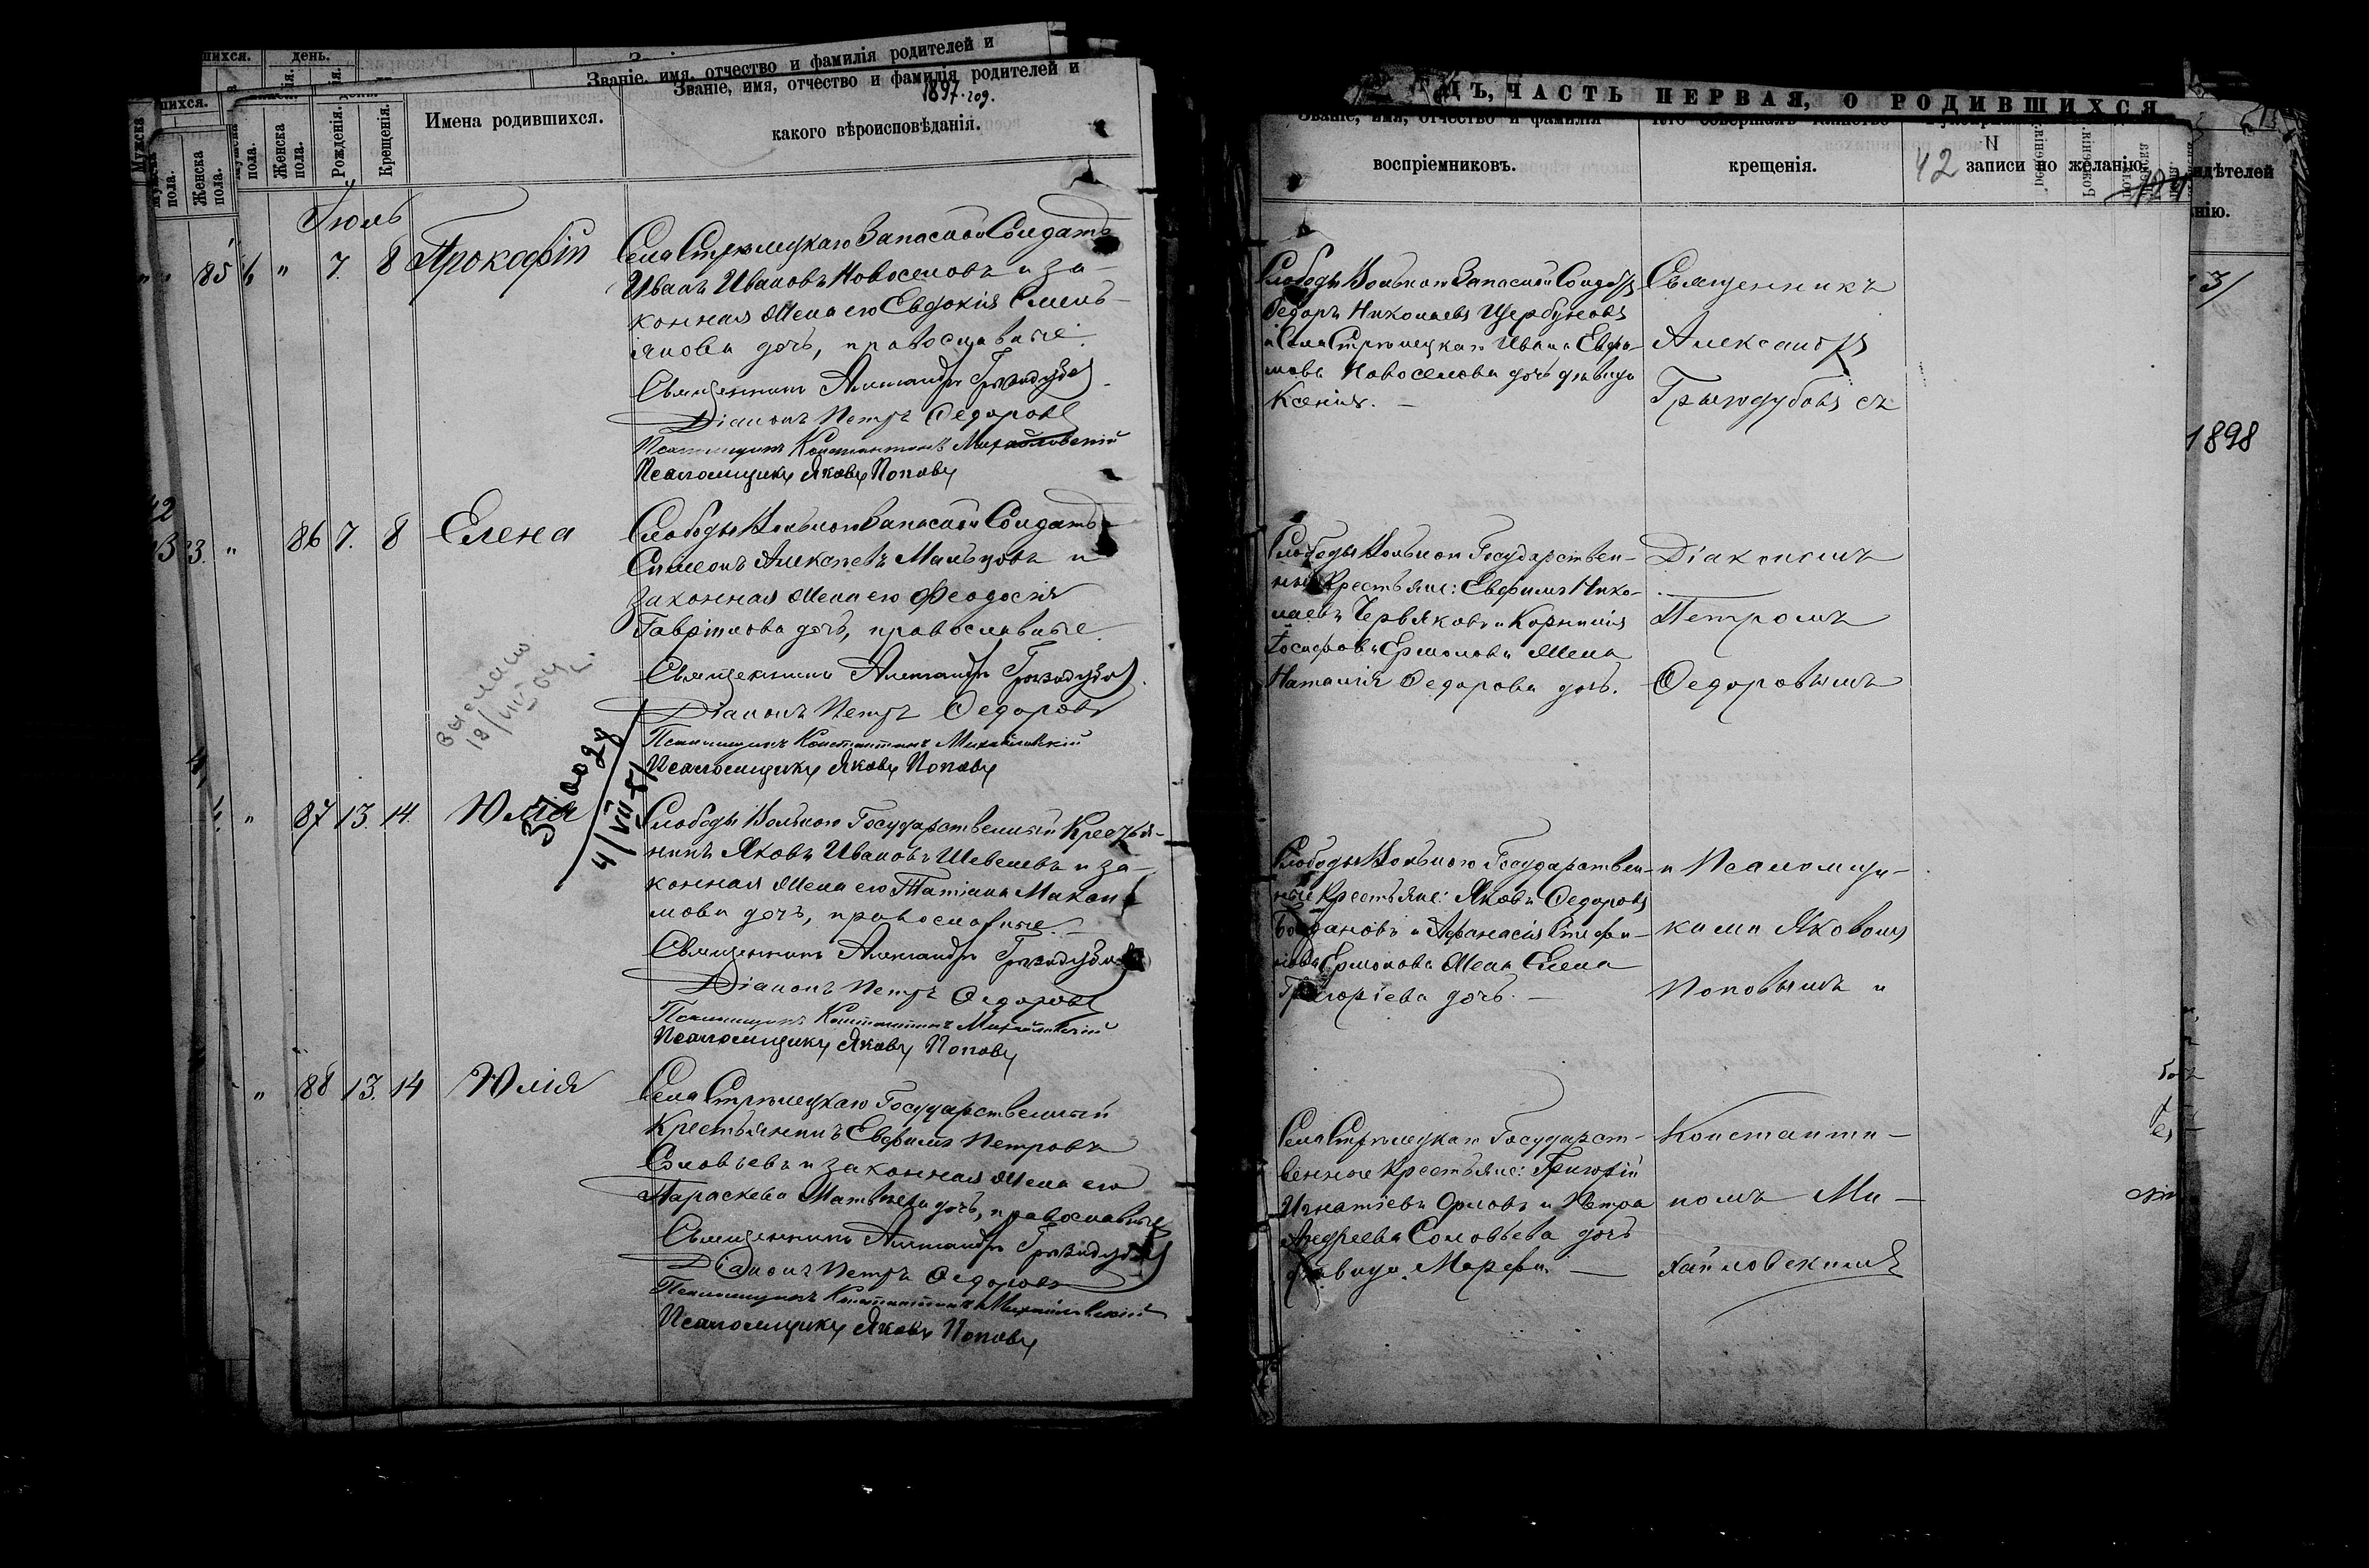 Званіе, имя, отчество и фамилія родителей и
Званіе, имя, отчество и фамилія родителей и
1897.
209.
какого вѣроисповѣданія.
Имена родившихся.
день.
Женска пола.
Женска пола.
Рожденія.
Крещенія.
Іюль
85 " 7. 8 Прокофій
Села Стрѣлецкаго Запасной Солдатъ
Иванъ Ивановъ Новоселовъ и за-
конная жена его Евдокія Емель-
янова дочь, православные.
Священникъ Александръ Грыздубовъ
Діаконъ Петръ Ѳедоровъ
Псаломщикъ Константинъ Михайловскій
Псаломщикъ Яковъ Поповъ
" 86 7. 8 Елена
Слободы Вольной Запасной Солдатъ
Симеонъ Алексѣевъ Мальцовъ и
законная жена его Ѳеодосія
Гавріилова дочь, православные.
Священникъ Александръ Грыздубовъ
Діаконъ Петръ Ѳедоровъ
Псаломщикъ Константинъ Михайловскій
Псаломщикъ Яковъ Поповъ
выслано
4/VII-51
" 87 13. 14. Юлія
Слободы Вольной Государственный Крестья-
нинъ Яковъ Ивановъ Шевелевъ и за-
конная жена его Татіана Макси-
мова дочь, православные.
Священникъ Александръ Грыздубовъ
Діаконъ Петръ Ѳедоровъ
Псаломщикъ Константинъ Михайловскій
Псаломщикъ Яковъ Поповъ
" 88 13. 14 Юлія
Села Стрѣлецкаго Государственный
Крестьянинъ Евфимъ Петровъ
Соловьевъ и законная жена его
Параскева Матвѣева дочь, православные
Священникъ Александръ Грыздубовъ
Діаконъ Петръ Ѳедоровъ
Псаломщикъ Константинъ Михайловскій
Псаломщикъ Яковъ Поповъ
ЧАСТЬ ПЕРВАЯ, О РОДИВШИХСЯ
Званіе, имя, отчество и фамилія
воспріемниковъ.
крещенія.
42
записи по желанію.
1898
Слободы Вольной Запасной Солдатъ
Ѳедоръ Николаевъ Щербаковъ
и Села Стрѣлецкаго Ивана Евфи-
мова Новоселова дочь дѣвица
Ксенія.
Священникъ
Александръ
Грыздубовъ съ
Слободы Вольной Государствен-
ные Крестьяне: Евфимъ Нико-
лаевъ Червяковъ и Корнилія
Іосифова Ермолова жена
Наталія Ѳедорова дочь.
Діакономъ
Петромъ
Ѳедоровымъ
Слободы Вольной Государствен-
ные Крестьяне: Яковъ Ѳедоровъ
Богдановъ и Аѳанасія Стефа-
нова Ермолова жена Елена
Григоріева дочь.
и Псаломщи-
ками Яковомъ
Поповымъ и
Села Стрѣлецкаго Государст-
венные Крестьяне: Григорій
Игнатіевъ Орловъ и Петра
Андреева Соловьева дочь
дѣвица Марфа.
Константи-
номъ Ми-
хайловскимъ